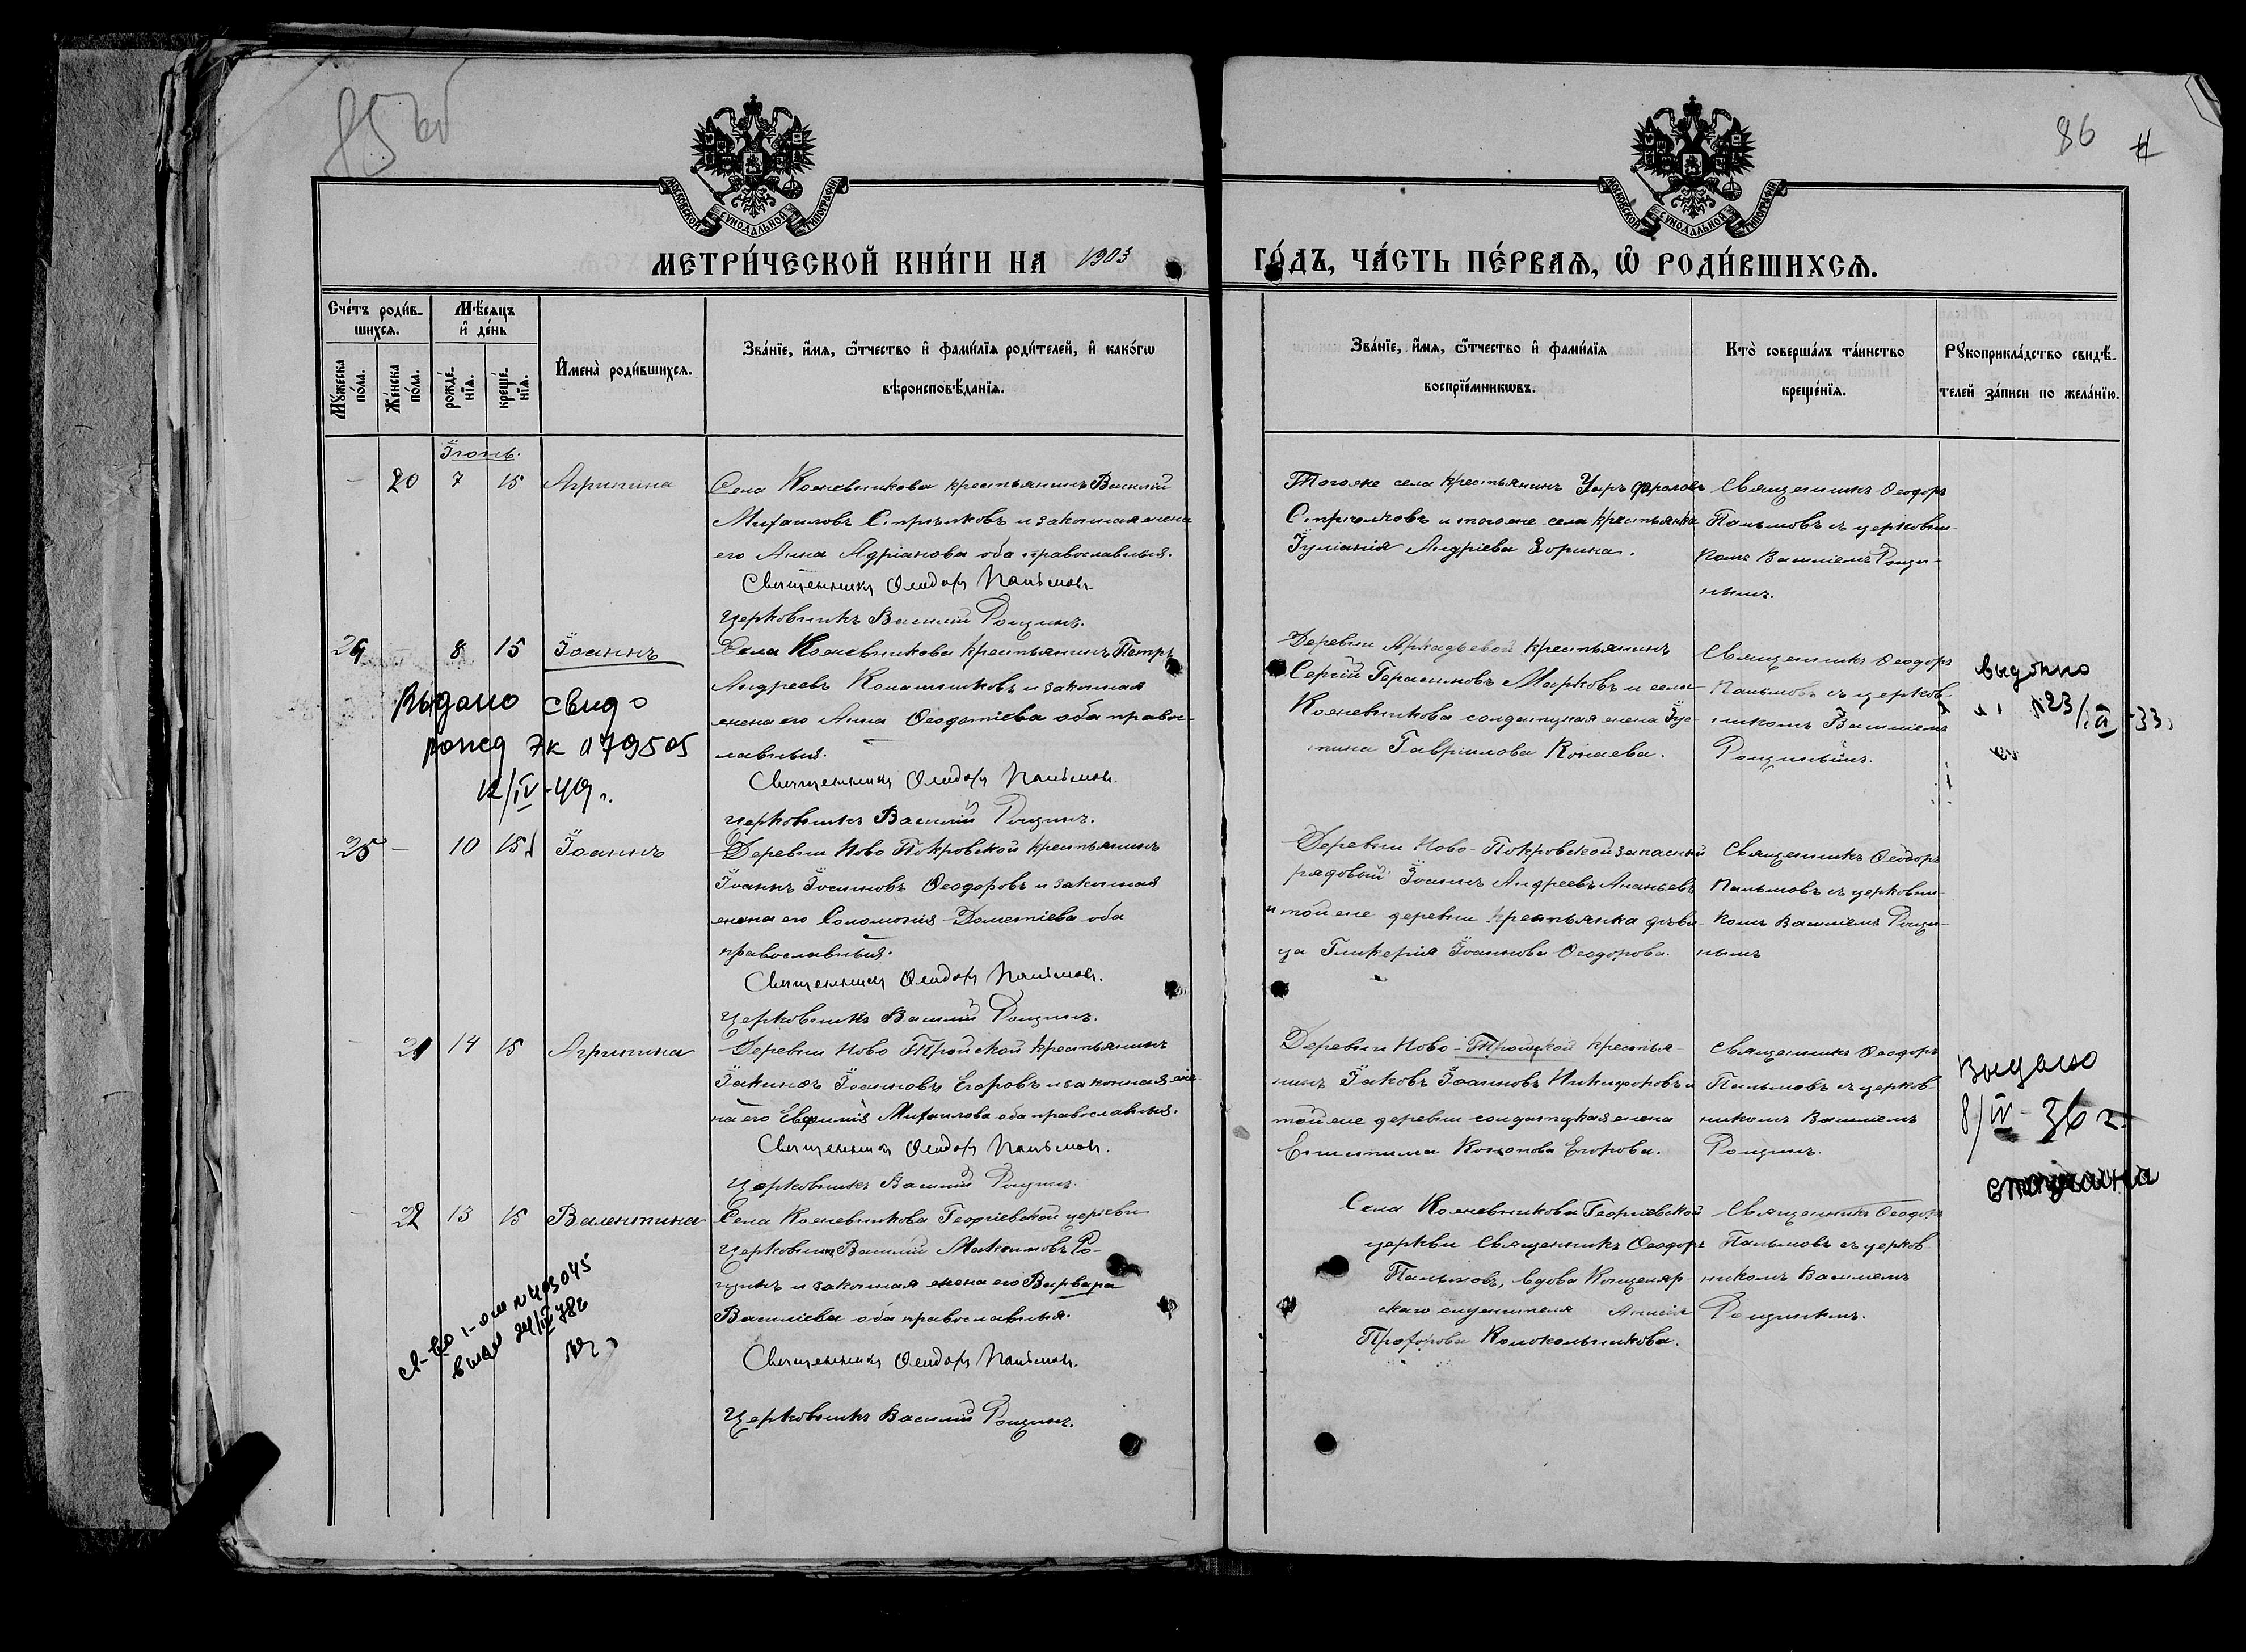 85 об
86
МОСКОВСКОЙ СѴНОДАЛЬНОЙ ТИПОГРАФІИ
МОСКОВСКОЙ СѴНОДАЛЬНОЙ ТИПОГРАФІИ
МЕТРИ́ЧЕСКОЙ КНИ́ГИ НА 1903
ГО́ДЪ, ЧА́СТЬ ПЕ́РВАѦ, Ѽ РОДИ́ВШИХСѦ.
Сче́тъ роди́в-
шихсѧ.
Мꙋ́жеска по́ла.
Же́нска по́ла.
Мѣ́сѧцъ
и҆ де́нь
рожде́-
нїѧ.
креще́-
нїѧ.
И҆мена̀ роди́вшихсѧ.
Зва́нїе, и҆́мѧ, ѻ҆́тчество и҆ фами́лїѧ роди́телей, и҆ како́гѡ
вѣроисповѣ́данїѧ.
Зва́нїе, и҆́мѧ, ѻ҆́тчество и҆ фами́лїѧ
воспрїе́мникѡвъ.
Кто̀ соверша́лъ та́инство
креще́нїѧ.
Рꙋкоприкла́дство свидѣ́-
телей за́писи по жела́нїю.
Іюнь.
- 20 7 15 Агрипина
Села Кожевникова крестьянинъ Василій
Михаиловъ Стрѣлковъ и законная жена
его Анна Адріанова оба православныя.
Священникъ Ѳеодоръ Пальмовъ
Церковникъ Василій Рощинъ.
Тогоже села крестьянинъ Уаръ Фроловъ
Стрѣлковъ и тогоже села крестьянка
Іуліанія Андріева Зорина.
Священникъ Ѳеодоръ
Пальмовъ съ церковни-
комъ Василіемъ Рощи-
нымъ.
24 8 15 Іоаннъ
Села Кожевникова крестьянинъ Петръ
Андреевъ Калашниковъ и законная
жена его Анна Ѳеодотіева оба право-
славныя.
Священникъ Ѳеодоръ Пальмовъ.
Церковникъ Василій Рощинъ.
Деревни Аркадьевой крестьянинъ
Сергій Герасимовъ Марковъ и села
Кожевникова солдатская жена Іус-
тина Гавриилова Конаева.
Священникъ Ѳеодоръ
Пальмовъ съ церков-
никомъ Василіемъ
Рощинымъ.
выдано
№23/IV-33
Выдано свид о
рожд ЭК 079505
12/IV-49 г.
25 - 10 15 Іоаннъ
Деревни Ново Покровской крестьянинъ
Іоаннъ Іоанновъ Ѳеодоровъ и законная
жена его Соломонія Дометіева оба
православныя.
Священникъ Ѳеодоръ Пальмовъ.
Церковникъ Василій Рощинъ.
Деревни Ново-Покровской запасный
рядовый Іоаннъ Андреевъ Ананьевъ
и тойже деревни крестьянка дѣви-
ца Гликерія Іоаннова Ѳеодорова.
Священникъ Ѳеодоръ
Пальмовъ съ церковни-
комъ Василіемъ Рощи-
нымъ
- 21 14 15 Агрипина
Деревни Ново Троицкой крестьянинъ
Іакинѳъ Іоанновъ Егоровъ и законная же-
на его Евфимія Михаилова оба православныя.
Священникъ Ѳеодоръ Пальмовъ.
Церковникъ Василій Рощинъ.
Деревни Ново-Троицкой крестья-
нинъ Іаковъ Іоанновъ Никифоровъ и
тойже деревни солдатская жена
Епистима Кононова Егорова.
Священникъ Ѳеодоръ
Пальмовъ съ церков-
никомъ Василіемъ
Рощинъ.
Выдано
8/IV-36 г.
- 22 13 15 Валентина
Села Кожевникова Георгіевской церкви
Церковникъ Василій Максимовъ Ро-
щинъ и законная жена его Варвара
Василіева оба православныя.
Священникъ Ѳеодоръ Пальмовъ.
Церковникъ Василій Рощинъ.
Села Кожевникова Георгіевской
церкви Священникъ Ѳеодоръ
Пальмовъ, вдова Канцеляр-
скаго служителя Анисія
Прохорова Колокольникова.
Священникъ Ѳеодоръ
Пальмовъ съ церков-
никомъ Василіемъ
Рощинымъ.
св-во № 403045